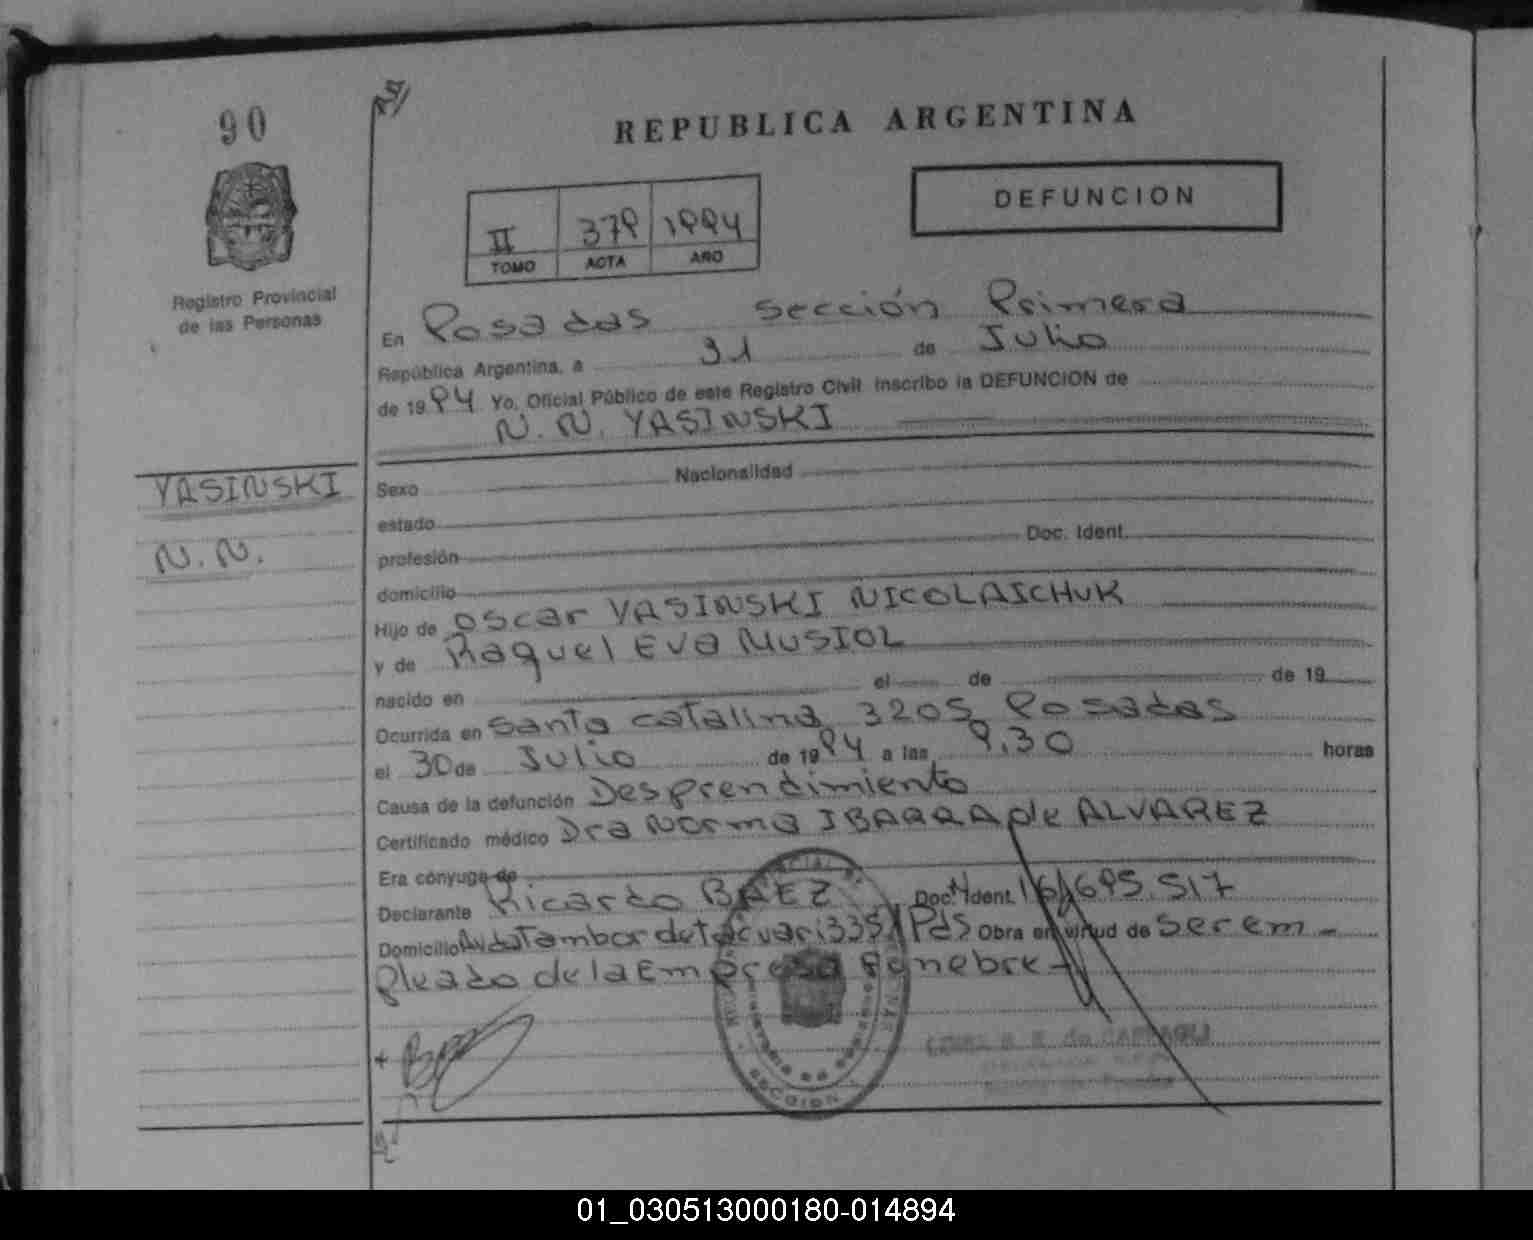 90
REPUBLICA ARGENTINA
DEFUNCION
II 379 1994
TOMO ACTA AÑO
Registro Provincial
de las Personas
En Posadas sección Primera
República Argentina, a 31 de Julio
de 1994 Yo, Oficial Público de este Registro Civil inscribo la DEFUNCION de
N. N. YASINSKI
YASINSKI
N. N.
Sexo Nacionalidad
estado
profesión Doc. Ident.
domicilio
Hijo de Oscar YASINSKI NICOLAICHUK
y de Raquel Eva MUSIOL
nacido en el de de 19
Ocurrida en Santa catalina 3205 Posadas
el 30 de Julio de 1994 a las 9.30 horas
Causa de la defunción Desprendimiento
Certificado médico Dra Norma IBARRA de ALVAREZ
Era cónyuge de
Declarante Ricardo BAEZ Doc. Ident. 16.695.517
Domicilio Avda Tambor de Tacuari 335 Pds Obra en virtud de ser em-
pleado de la Empresa Funebre
SECCION
01_030513000180-014894